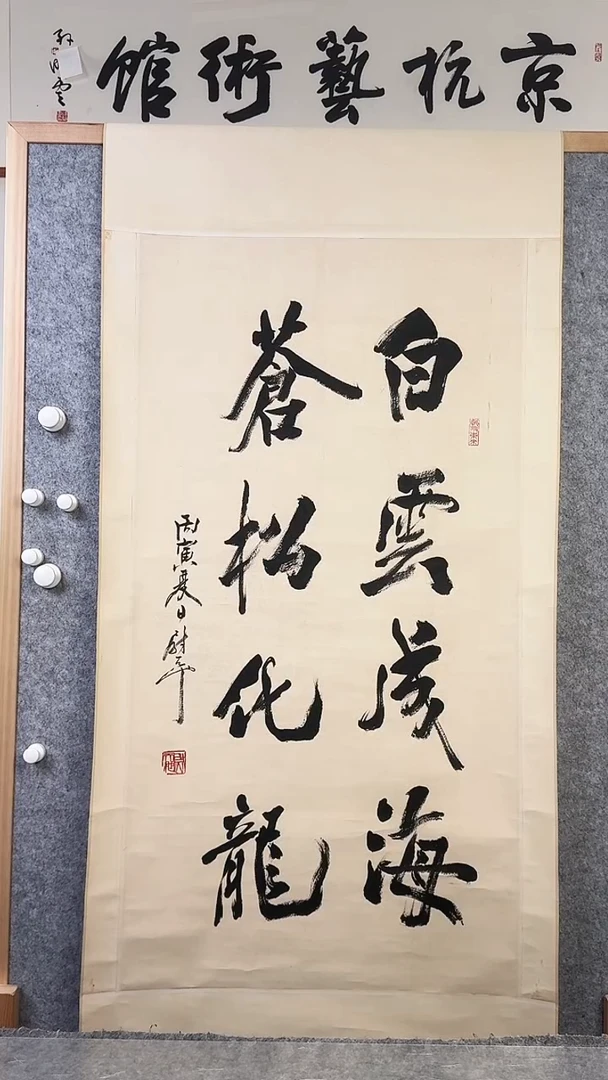 京杭藝術館
白雲成海
蒼松化龍
丙寅夏日尉平